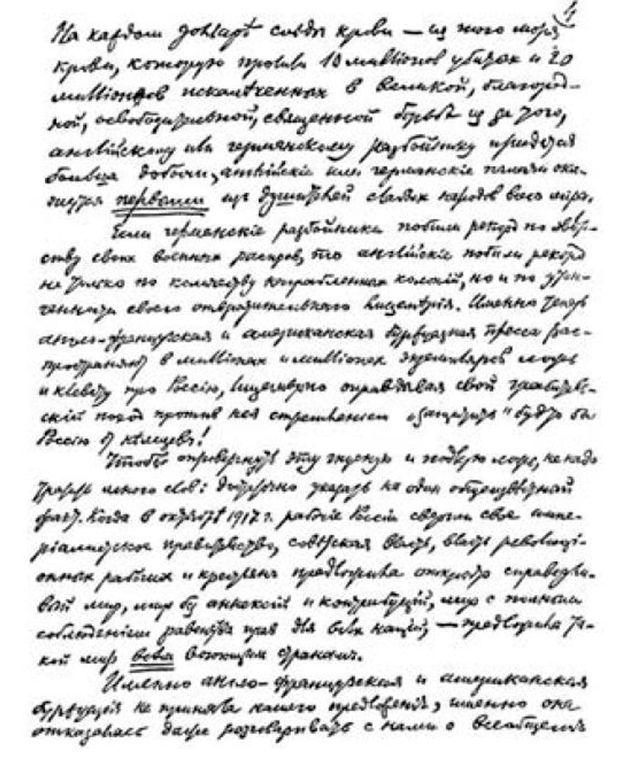 4
На каждом долларѣ слѣды крови — из того моря
крови, которую пролили 10 миллионов убитых и 20
миллионов искалѣченных в великой, благород-
ной, освободительной, священной борьбѣ из за того,
английскому или германскому разбойнику придется
больше добычи, английскіе или германскіе палачи ока-
жутся первыми из душителей слабых народов всего мира.
Если германскіе разбойники побили рекорд по звѣр-
ству своих военных расправ, то английскіе побили рекорд
не только по количеству награбленных колоній, но и по утон-
ченности своего отвратительнаго лицемѣрія. Именно теперь
англо-французская и американская буржуазная пресса рас-
пространяет в миллионах и миллионах экземпляров ложь
и клевету про Россію, лицемѣрно оправдывая свой грабитель-
скій поход против нея стремленіем „защитить" будто бы
Россію от нѣмцев!
Чтобы опровергнуть эту гнусную и подлую ложь, не надо
тратить много слов: достаточно указать на один общеизвѣстный
факт. Когда в октябрѣ 1917 г. рабочіе Россіи свергли свое импе-
ріалистское правительство, совѣтская власть, власть революці-
онных рабочих и крестьян предложила открыто справедли-
вый мир, мир без аннексій и контрибуцій, мир с полным
соблюденіем равенства прав для всѣх націй, — предложила та-
кой мир всѣм воюющим странам.
Именно англо-французская и американская
буржуазія не приняла нашего предложенія, именно она
отказалась даже разговаривать с нами о всеобщем